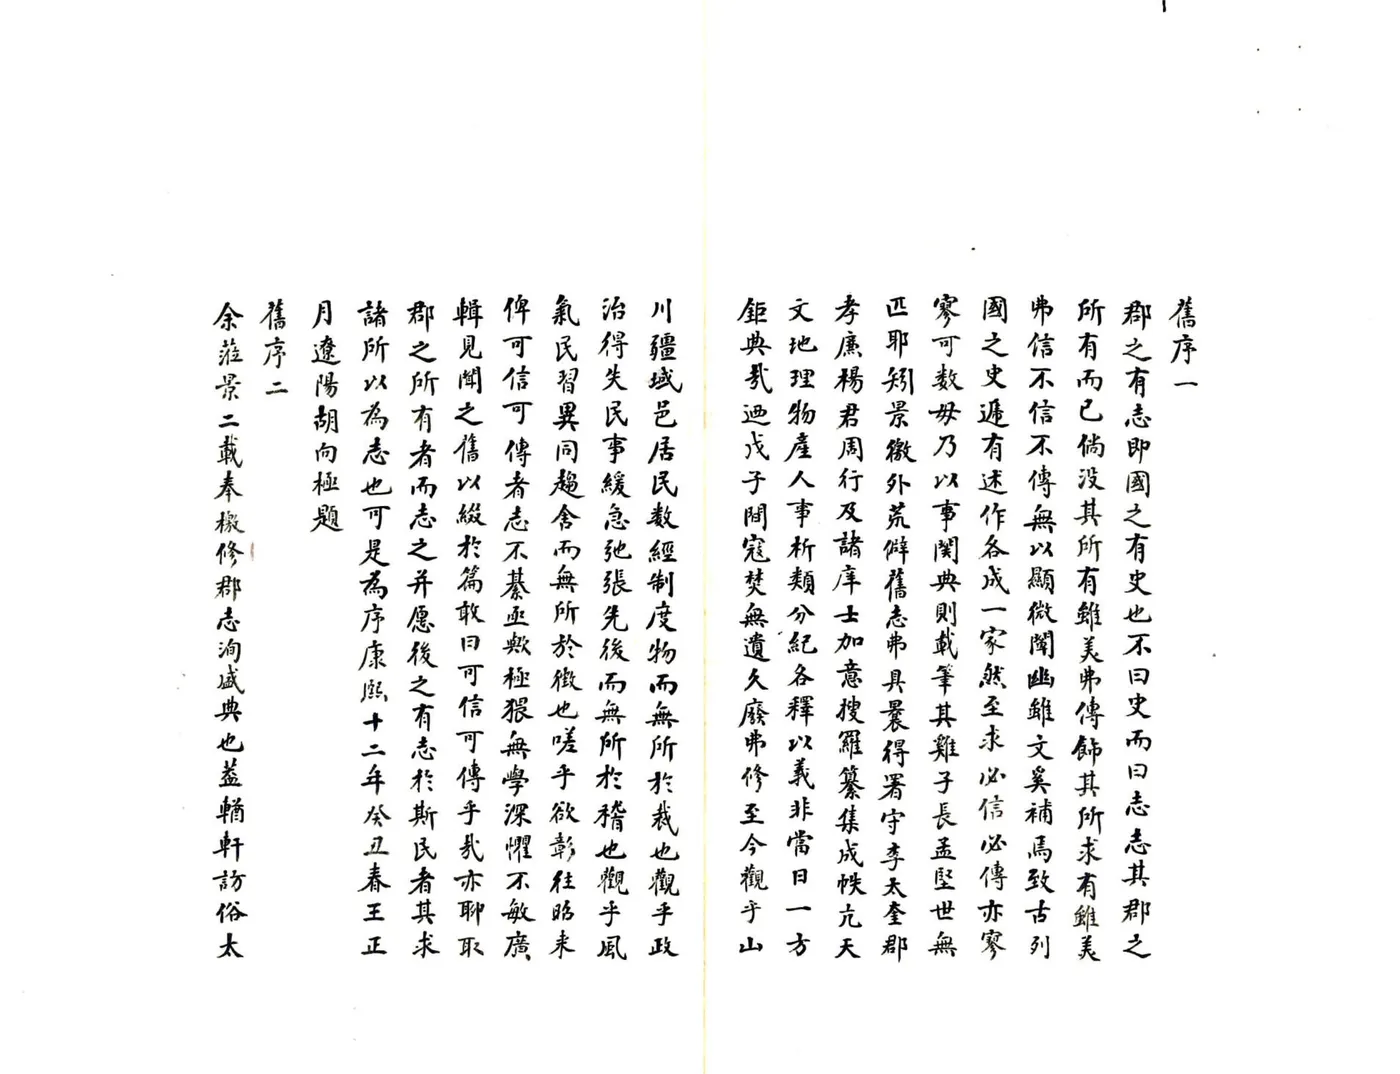 舊序一
郡之有志即國之有史也不曰史而曰志志其郡之
所有而已倘没其所有雖美弗傳飾其所求有雖美
弗信不信不傳無以顯微闡幽雖文奚補焉致古列
國之史遞有述作各成一家然至求必信必傳亦寥
寥可数毋乃以事関典則載筆其難子長孟堅世無
匹耶矧景徼外荒僻舊志弗具曩得署守李太奎郡
孝廉楊君周行及諸庠士加意搜羅纂集成帙亢天
文地理物產人事析類分紀各釋以義非當日一方
鉅典㢤迺戊子間寇焚無遺久廢弗修至今觀乎山
川疆域邑居民数經制度物而無所於裁也觀乎政
治得失民事緩急弛張先後而無所於稽也觀乎風
氣民習異同趨舍而無所於徵也嗟乎欲彰往昭来
俾可信可傳者志不綦亟歟極猥無學深懼不敏廣
輯見聞之舊以綴於篇敢曰可信可傳乎㢤亦聊取
郡之所有者而志之并愿後之有志於斯民者其求
諸所以為志也可是為序康熙十二年癸丑春王正
月遼陽胡向極題
舊序二
余蒞景二載奉檄修郡志洵盛典也葢輶軒訪俗太